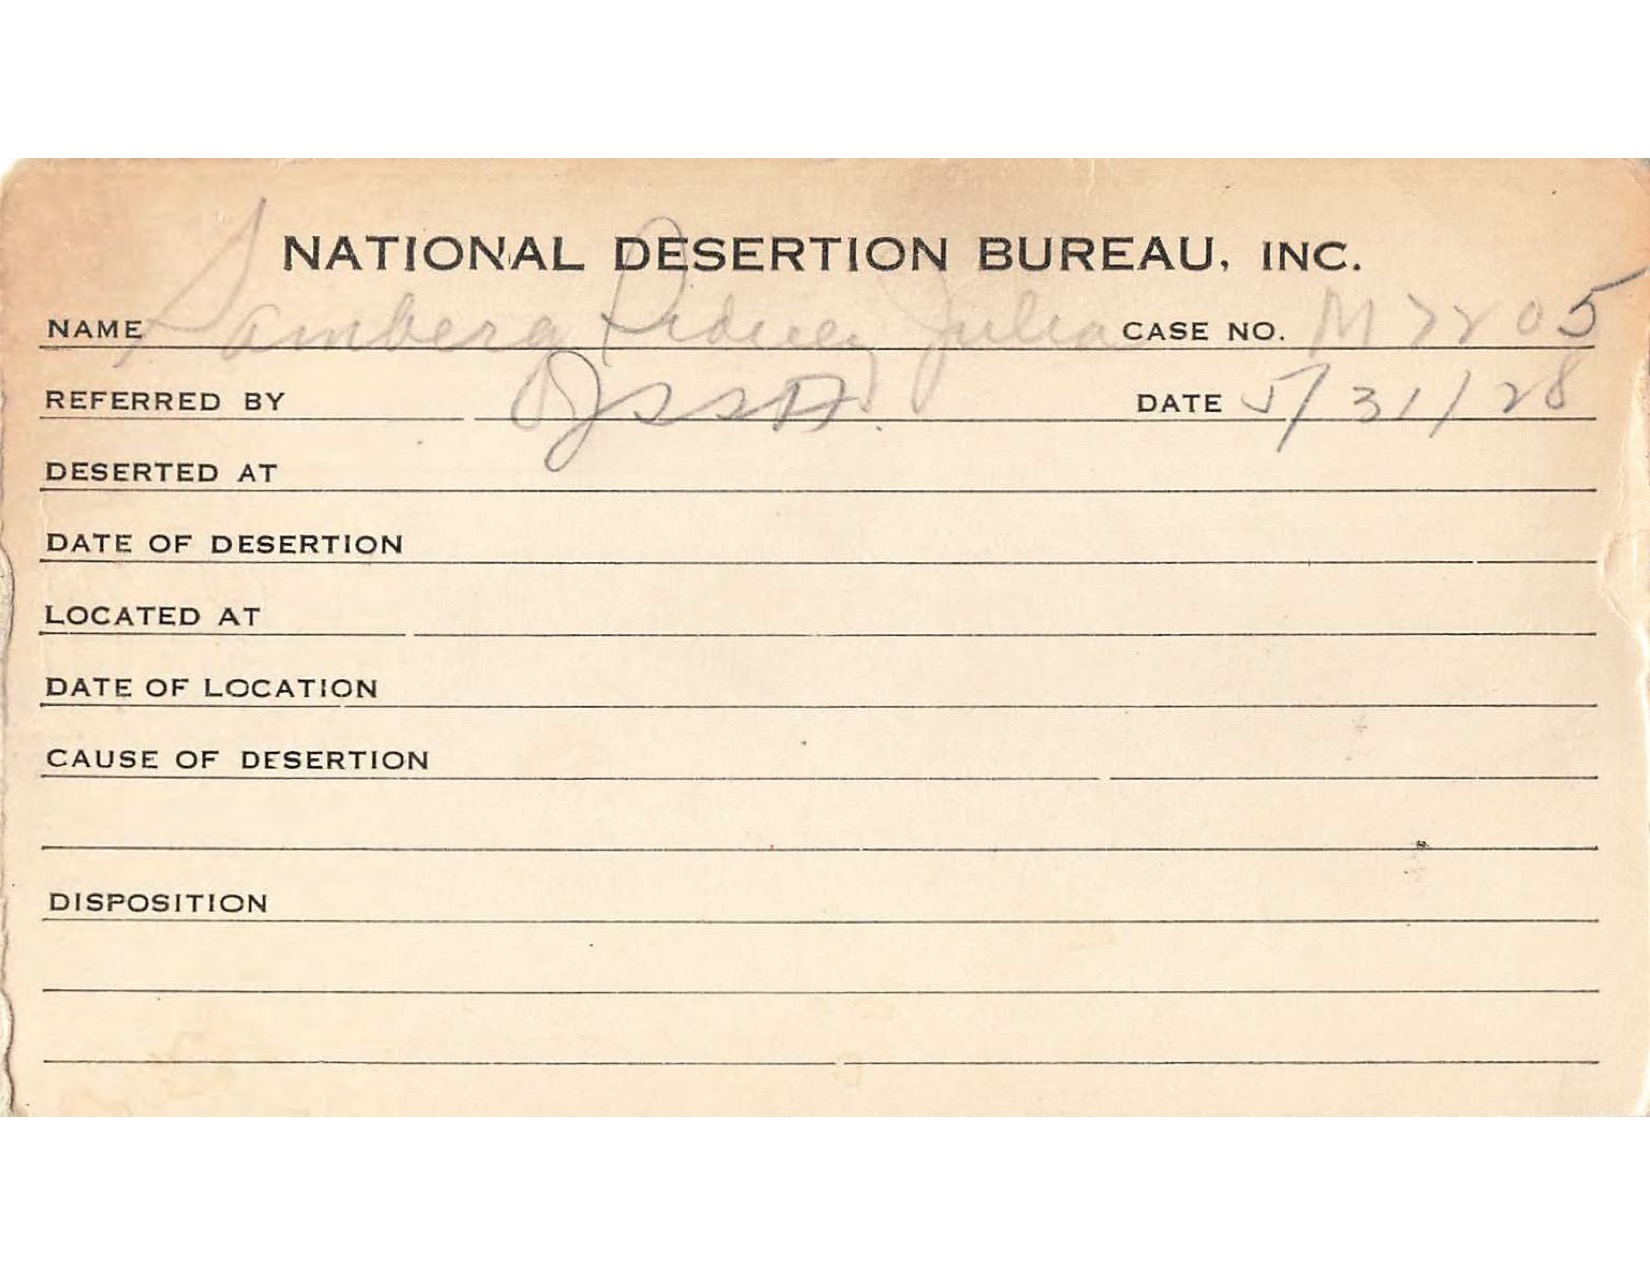 NATIONAL DESERTION BUREAU, INC.
NAME Samberg Sidney Julia CASE NO. M7205
REFERRED BY JSSA. DATE 5/31/28
DESERTED AT
DATE OF DESERTION
LOCATED AT
DATE OF LOCATION
CAUSE OF DESERTION
DISPOSITION